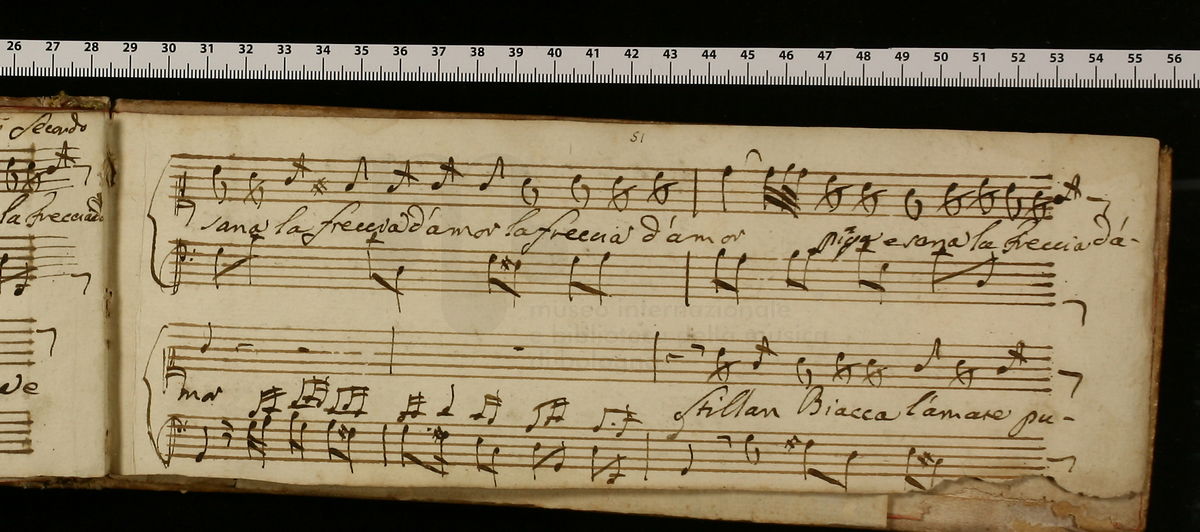 26 27 28 29 30 31 32 33 34 35 36 37 38 39 40 41 42 43 44 45 46 47 48 49 50 51 52 53 54 55 56
Secondo
la freccia d'à
ve
51
sana la freccia d'àmor la freccia d'àmor e sana la freccia d'à-
museo internazionale
biblioteca della musica
mor Stillan Biacca l'amare pu-